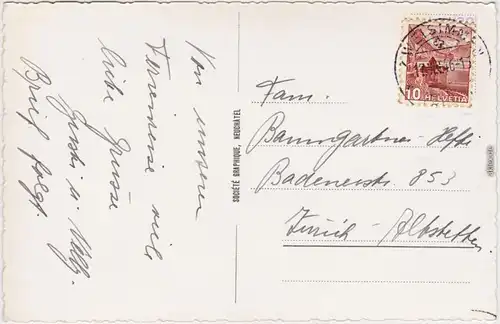 Von unserer
Ferienreise viele
liebe Grüsse
Gusti u. Wally.
Brief folgt.
SOCIÉTÉ GRAPHIQUE, NEUCHÂTEL
ZWEISIMMEN
10
HELVETIA
Fam.
Baumgartner-Hefti
Badenerstr. 853
Zürich-Albstetten